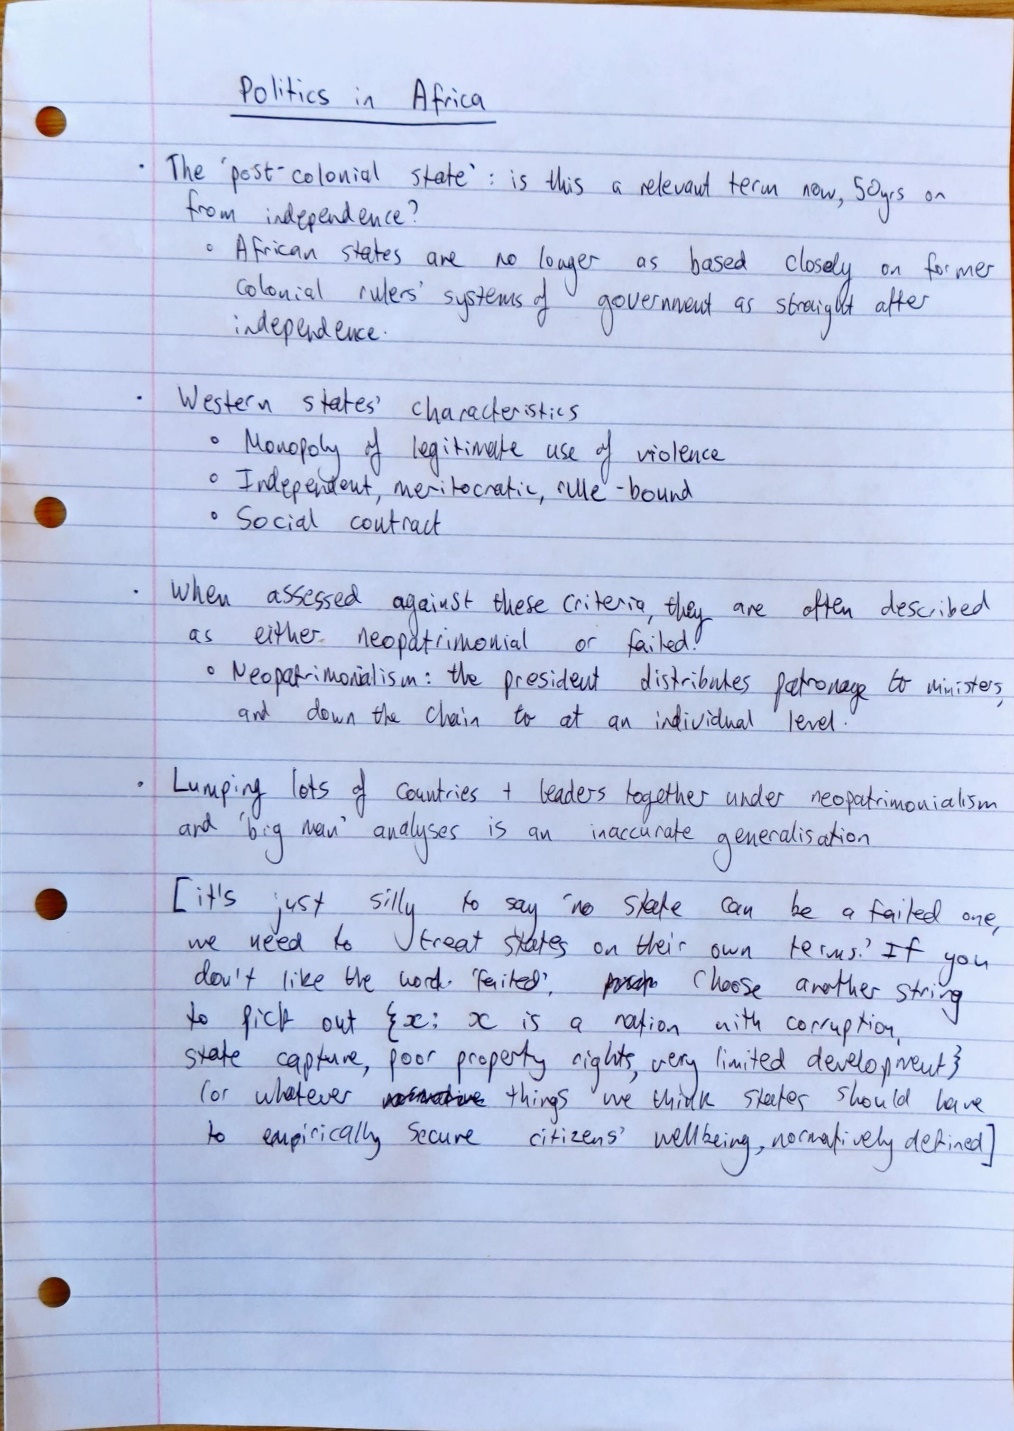 Politics in Africa
· The 'post-colonial state': is this a relevant term now, 50yrs on
from independence?
◦ African states are no longer as based closely on former
colonial rulers' systems of government as straight after
independence.
· Western states' characteristics
◦ Monopoly of legitimate use of violence
◦ Independent, meritocratic, rule-bound
◦ Social contract
· When assessed against these criteria, they are often described
as either neopatrimonial or failed.
◦ Neopatrimonialism: the president distributes patronage to ministers,
and down the chain to at an individual level.
· Lumping lots of countries + leaders together under neopatrimonialism
and 'big man' analyses is an inaccurate generalisation
[it's just silly to say 'no state can be a failed one,
we need to treat states on their own terms.' If you
don't like the word 'failed', choose another string
to pick out {x: x is a nation with corruption,
state capture, poor property rights, very limited development}
(or whatever things we think states should have
to empirically secure citizens' wellbeing, normatively defined]